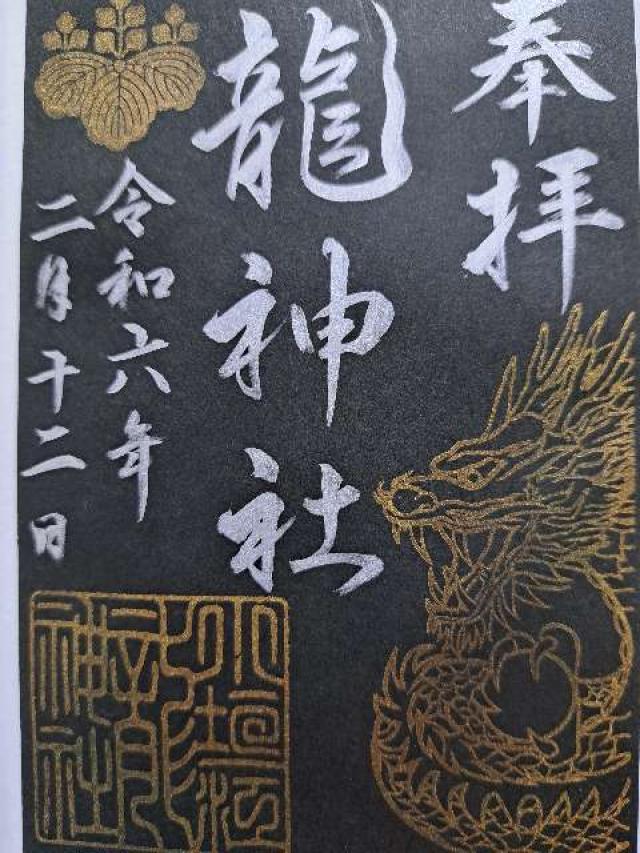 奉拝
龍神社
令和六年
二月十二日